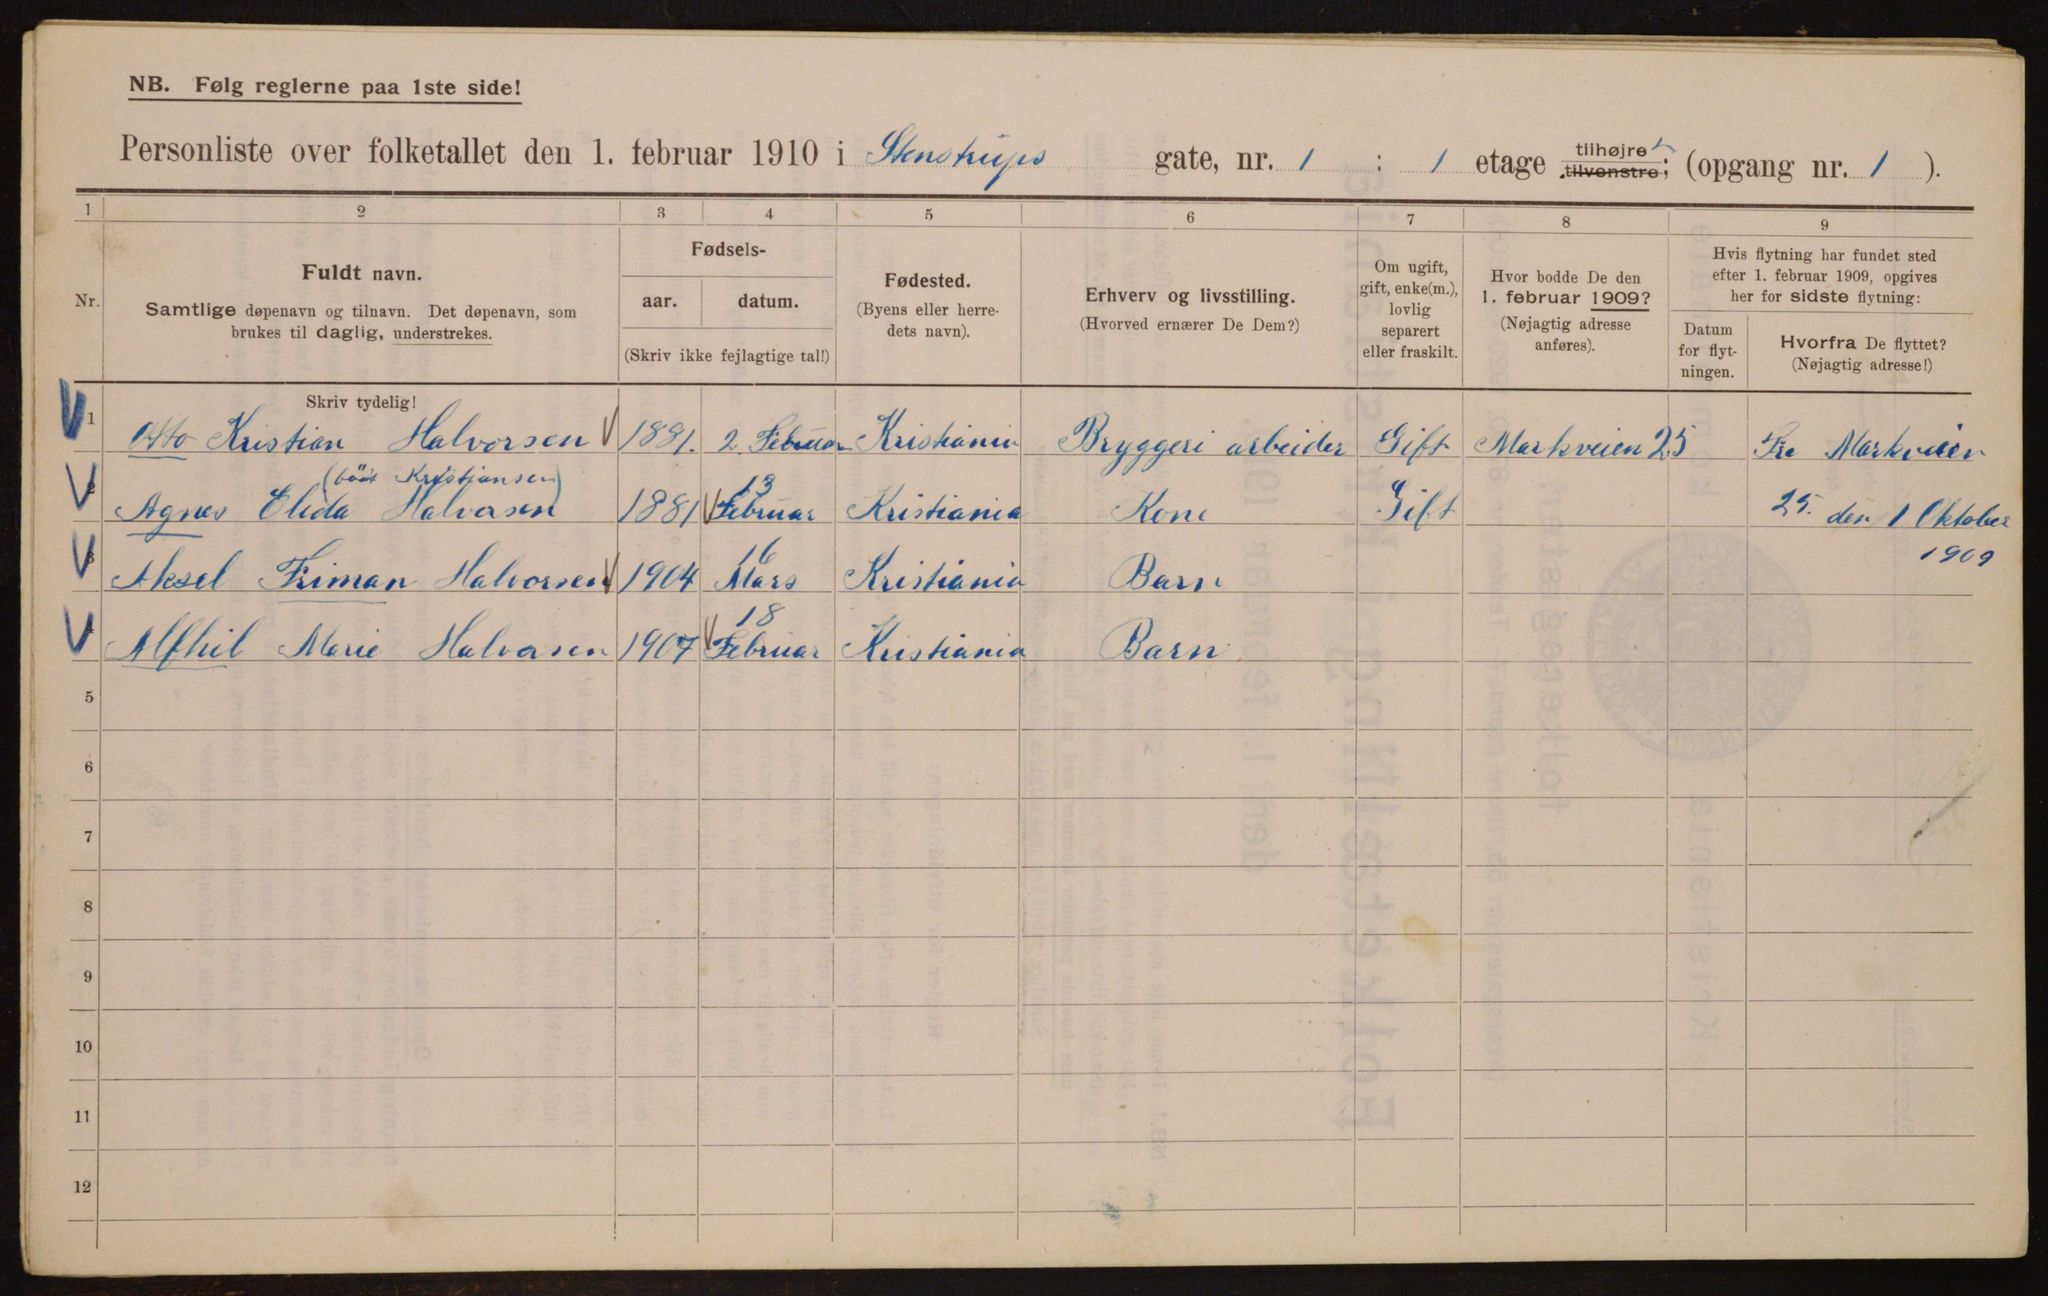 NB. Følg reglerne paa 1ste side!
Personliste over folketallet den 1. februar 1910 i Stenstrups gate, nr. 1 : 1 etage tilhøjre tilvenstre; (opgang nr. 1 ).
1 2 3 4 5 6 7 8 9
Nr.
Fuldt navn.
Samtlige døpenavn og tilnavn. Det døpenavn, som
brukes til daglig, understrekes.
Fødsels-
aar. datum.
(Skriv ikke fejlagtige tal!)
Fødested.
(Byens eller herre-
dets navn).
Erhverv og livsstilling.
(Hvorved ernærer De Dem?)
Om ugift,
gift, enke(m.),
lovlig
separert
eller fraskilt.
Hvor bodde De den
1. februar 1909?
(Nøjagtig adresse
anføres).
Hvis flytning har fundet sted
efter 1. februar 1909, opgives
her for sidste flytning:
Datum
for flyt-
ningen.
Hvorfra De flyttet?
(Nøjagtig adresse!)
Skriv tydelig!
1 Otto Kristian Halvorsen 1881. 2. Februar Kristiania Bryggeri arbeider Gift Markveien 25 Fra Markveien
(født Kristiansen)
2 Agnes Elida Halvorsen 1881 13 Februar Kristiania Kone Gift 25. den 1 Oktober
1909
3 Aksel Friman Halvorsen 1904 16 Mars Kristiania Barn
4 Alfhil Marie Halvorsen 1907 18 Februar Kristiania Barn
5
6
7
8
9
10
11
12